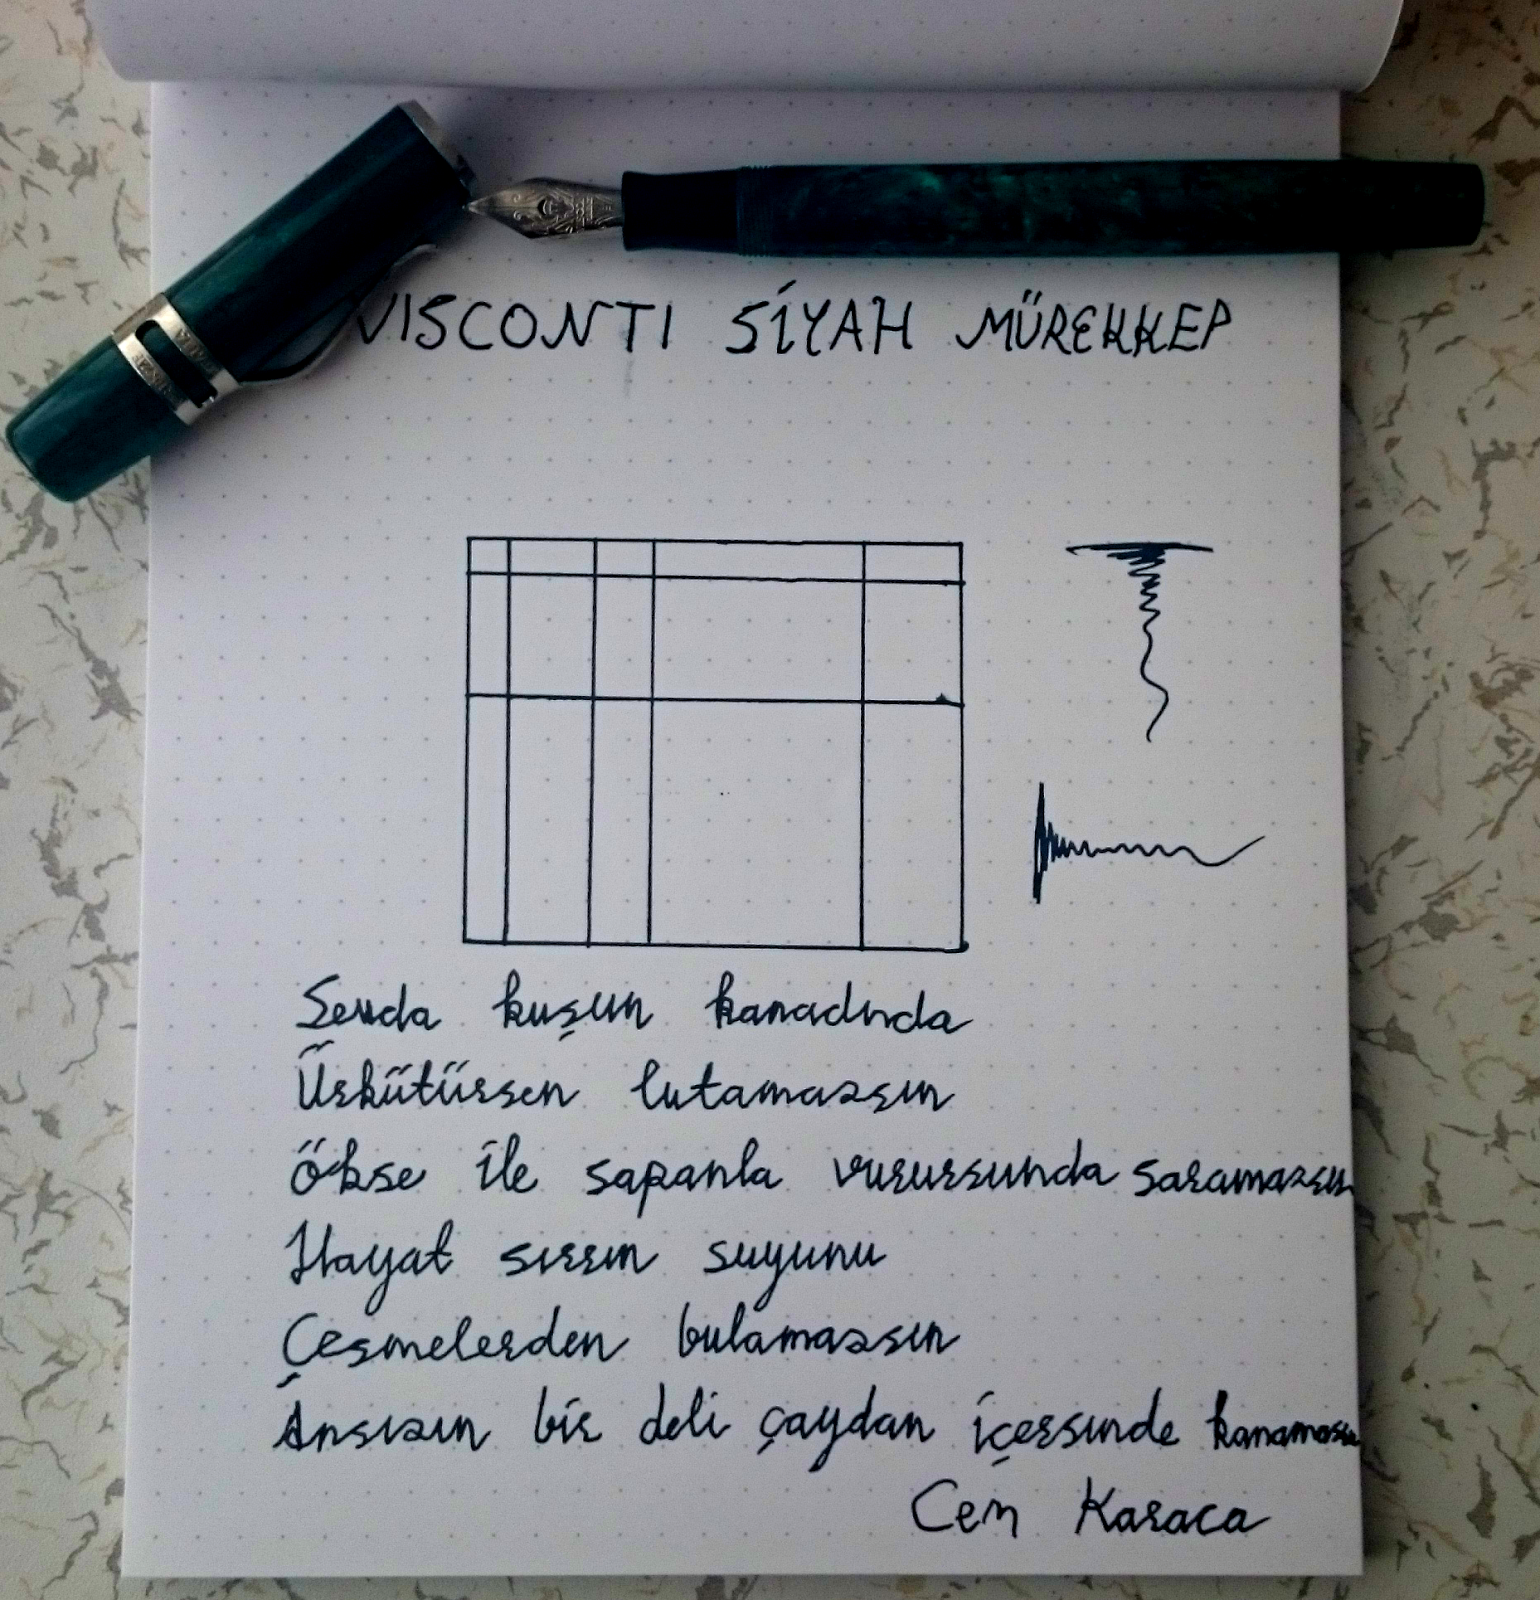 VISCONTI SİYAH MÜREKKEP
Sevda kuşun kanadında
Ürkütürsen tutamazsın
Ökse ile sapanla vurursunda saramazsın
Hayat sırrın suyunu
Çeşmelerden bulamazsın
Ansızın bir deli çaydan içersinde
Cem Karaca